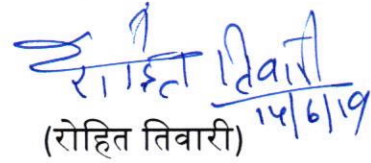 रोहित तिवारी
14/6/19
(रोहित तिवारी)